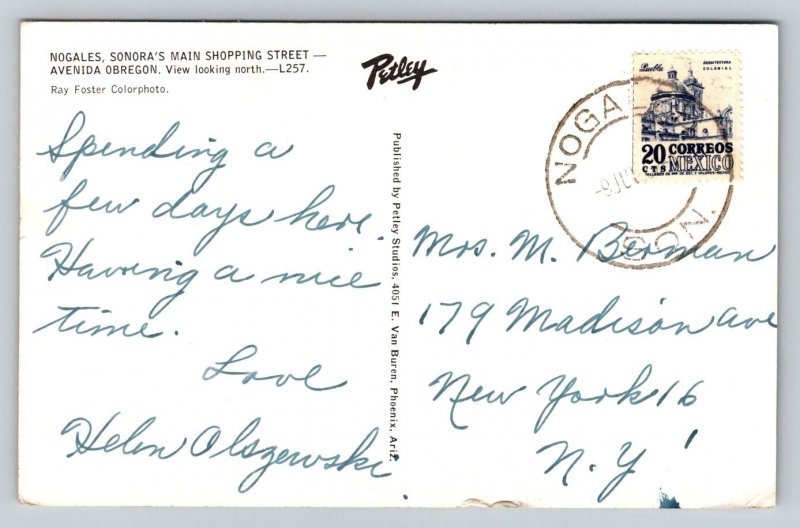 NOGALES, SONORA'S MAIN SHOPPING STREET —
AVENIDA OBREGON. View looking north.—L257.
Ray Foster Colorphoto.
Spending a
few days here.
Having a nice
time.
Love
Helen Olszewski
Petley
Published by Petley Studios, 4051 E. Van Buren, Phoenix, Ariz.
Puebla
ARQUITECTURA
COLONIAL
20 CORREOS
CTS MEXICO
NOGA
SON.
Mrs. M. Berman
179 Madison Ave
New York 16
N.Y